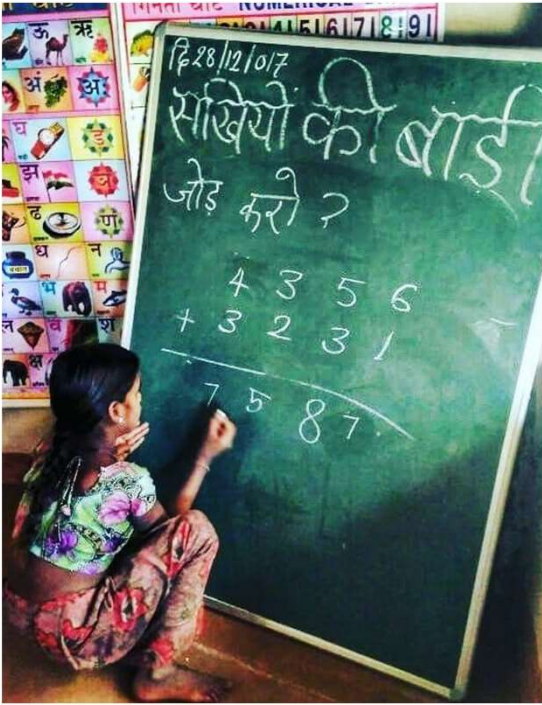 गिनती चार्ट NUMERICAL
4 5 6 7 8 9
ऊ ऋ
अं अः
घ ङ
झ ञ
ढ ण
ध न
भ म
ल व श
क्ष
दि 28/12/017
सखियों की बाड़ी
जोड़ करो ?
4 3 5 6
+ 3 2 3 1
7 5 8 7